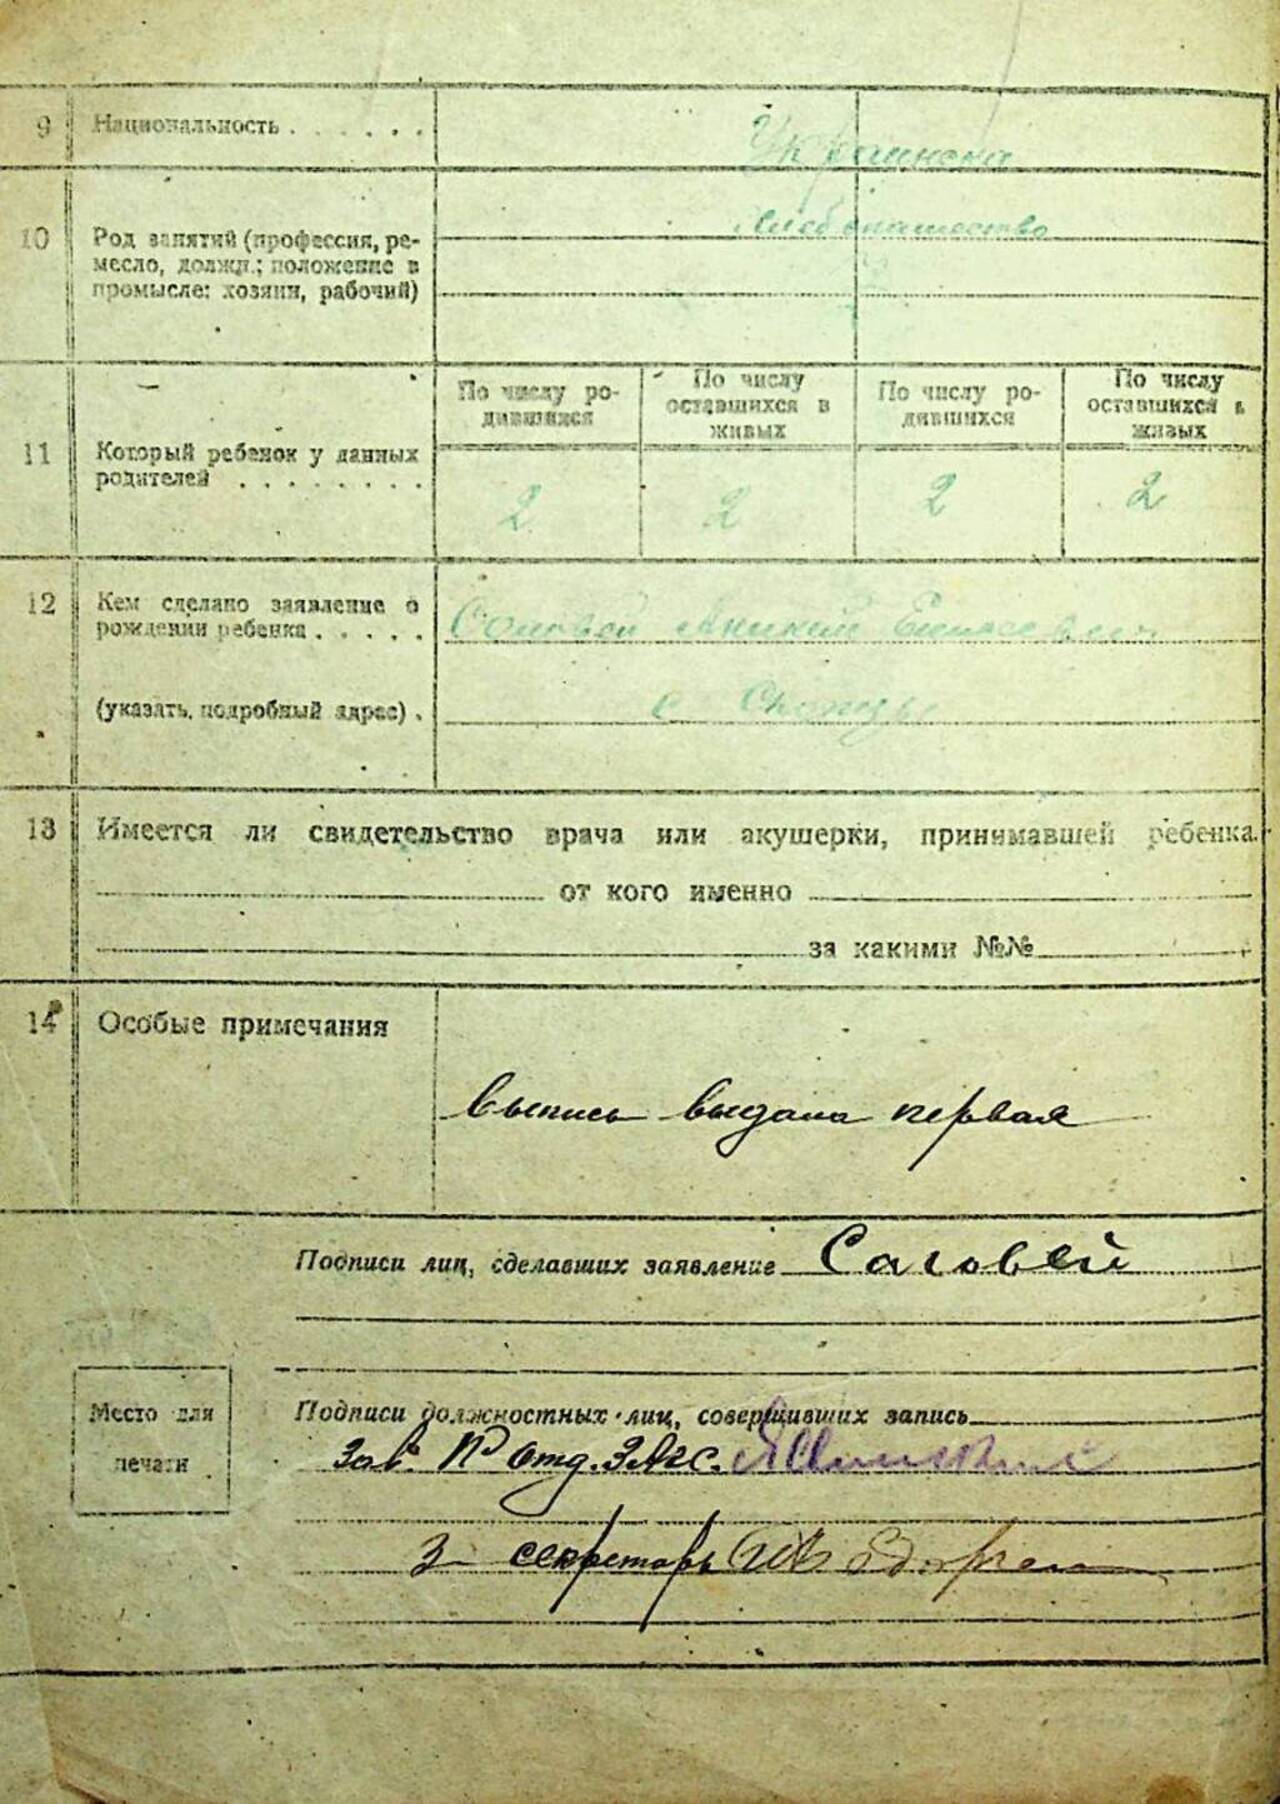 9 Национальность . . . . . .
Украинска
10 Род занятий (профессия, ре-
месло, должн.; положение в
промысле: хозяин, рабочий)
Хлебопашество
11 Который ребенок у данных
родителей . . . . . . . .
По числу ро-
дившихся
По числу
оставшихся в
живых
По числу ро-
дившихся
По числу
оставшихся в
живых
2 2 2 2
12 Кем сделано заявление о
рождении ребенка . . . . .
Соловей
(указать подробный адрес) .
с
13 Имеется ли свидетельство врача или акушерки, принимавшей ребенка.
от кого именно
за какими №№
14 Особые примечания
выпись выдана первая
Подписи лиц, сделавших заявление Саловей
Место для
печати
Подписи должностных лиц, совершивших запись
Зав. отд. ЗАГС.
секретарь